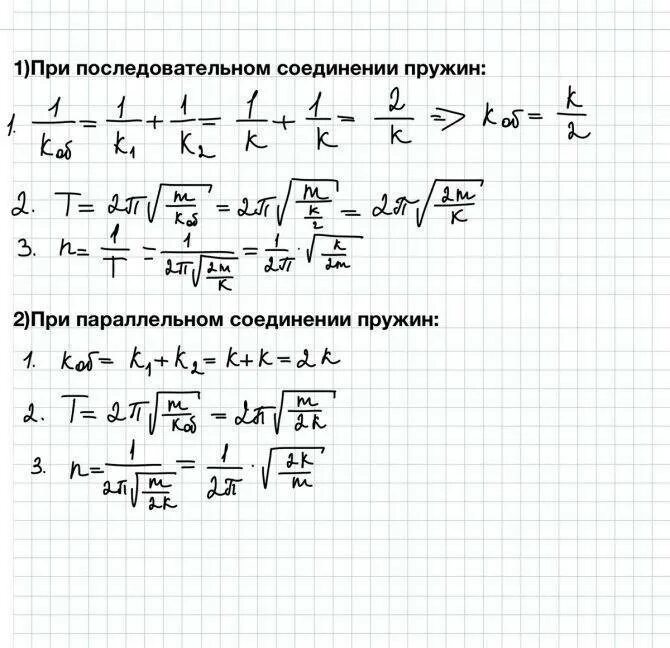 1)При последовательном соединении пружин:
1. 1/kоб = 1/k₁ + 1/k₂ = 1/k + 1/k = 2/k => kоб = k/2
2. T = 2π√(m/kоб) = 2π√(m/(k/2)) = 2π√(2m/k)
3. n = 1/T = 1/(2π√(2m/k)) = 1/2π · √(k/2m)
2)При параллельном соединении пружин:
1. kоб = k₁ + k₂ = k + k = 2k
2. T = 2π√(m/kоб) = 2π√(m/2k)
3. n = 1/(2π√(m/2k)) = 1/2π · √(2k/m)